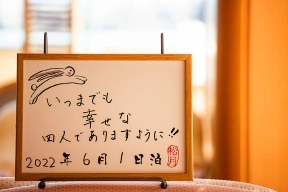 いつまでも
幸せな
四人でありますように!!
2022年6月1日泊